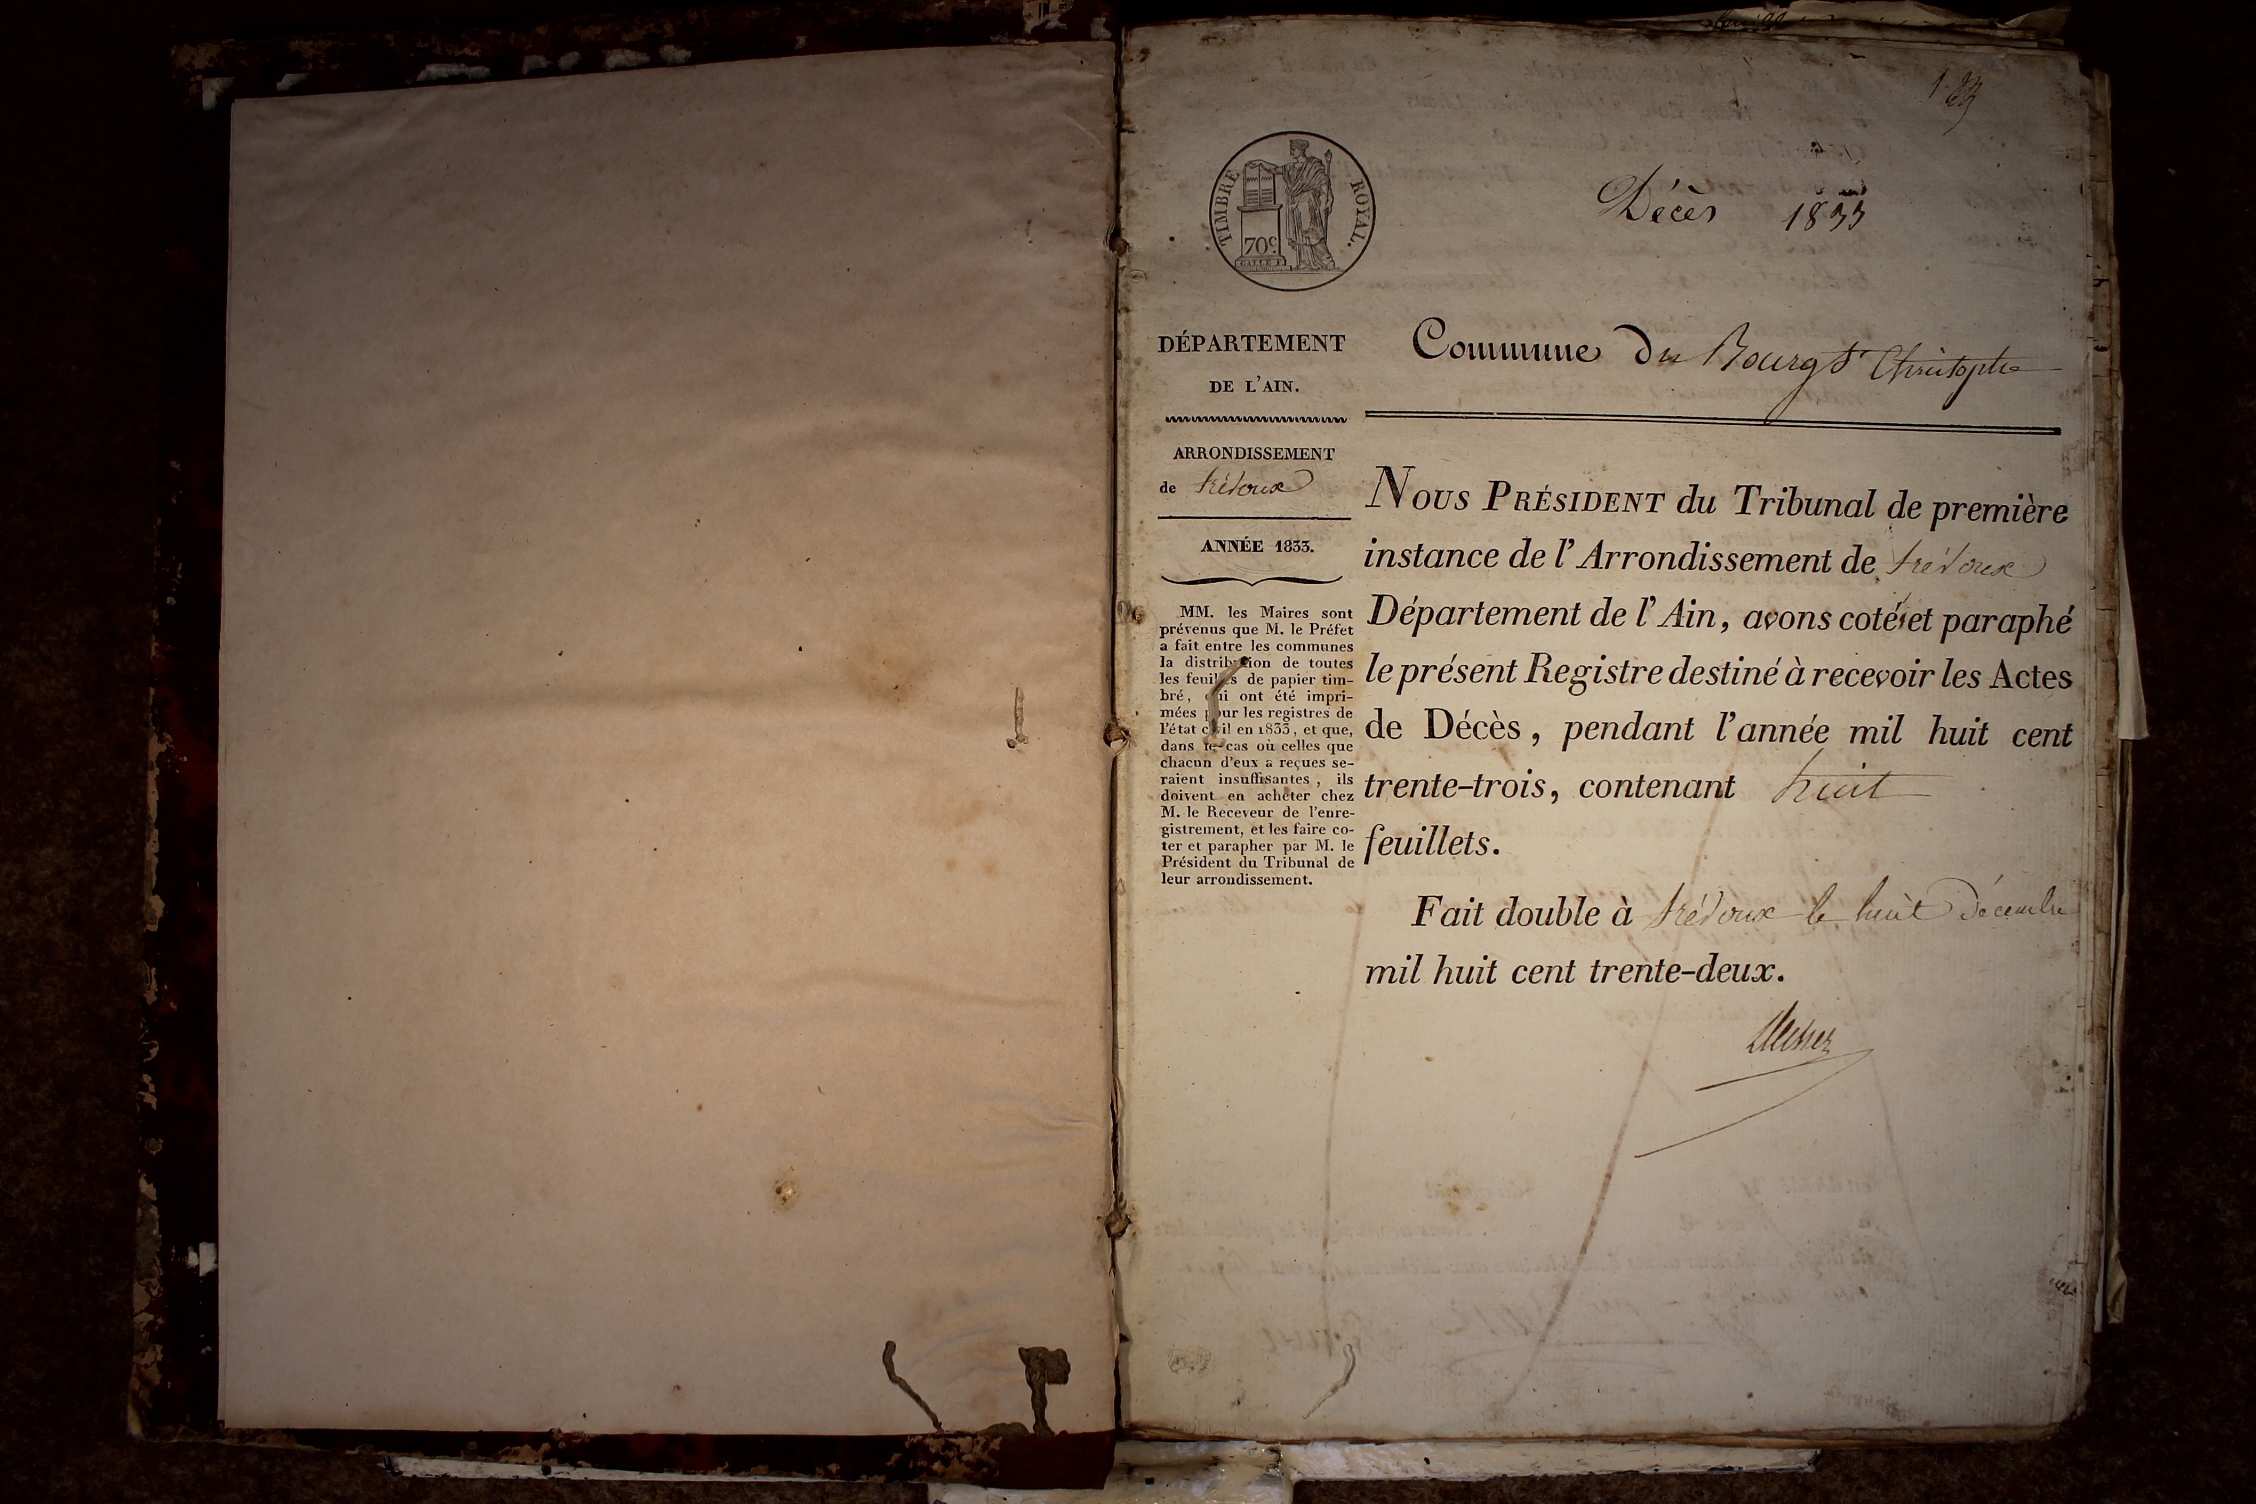 TIMBRE ROYAL.
70c.
Décès 1833
DÉPARTEMENT
DE L'AIN.
Commune du Bourg St Christophe
ARRONDISSEMENT
de trévoux
ANNÉE 1833.
MM. les Maires sont
prévenus que M. le Préfet
a fait entre les communes
la distribution de toutes
les feuilles de papier tim-
bré, qui ont été impri-
mées pour les registres de
l'état civil en 1833, et que,
dans le cas où celles que
chacun d'eux a reçues se-
raient insuffisantes, ils
doivent en acheter chez
M. le Receveur de l'enre-
gistrement, et les faire co-
ter et parapher par M. le
Président du Tribunal de
leur arrondissement.
NOUS PRÉSIDENT du Tribunal de première
instance de l'Arrondissement de trévoux
Département de l'Ain, avons coté et paraphé
le présent Registre destiné à recevoir les Actes
de Décès, pendant l'année mil huit cent
trente-trois, contenant huit
feuillets.
Fait double à trévoux le huit Décembre
mil huit cent trente-deux.